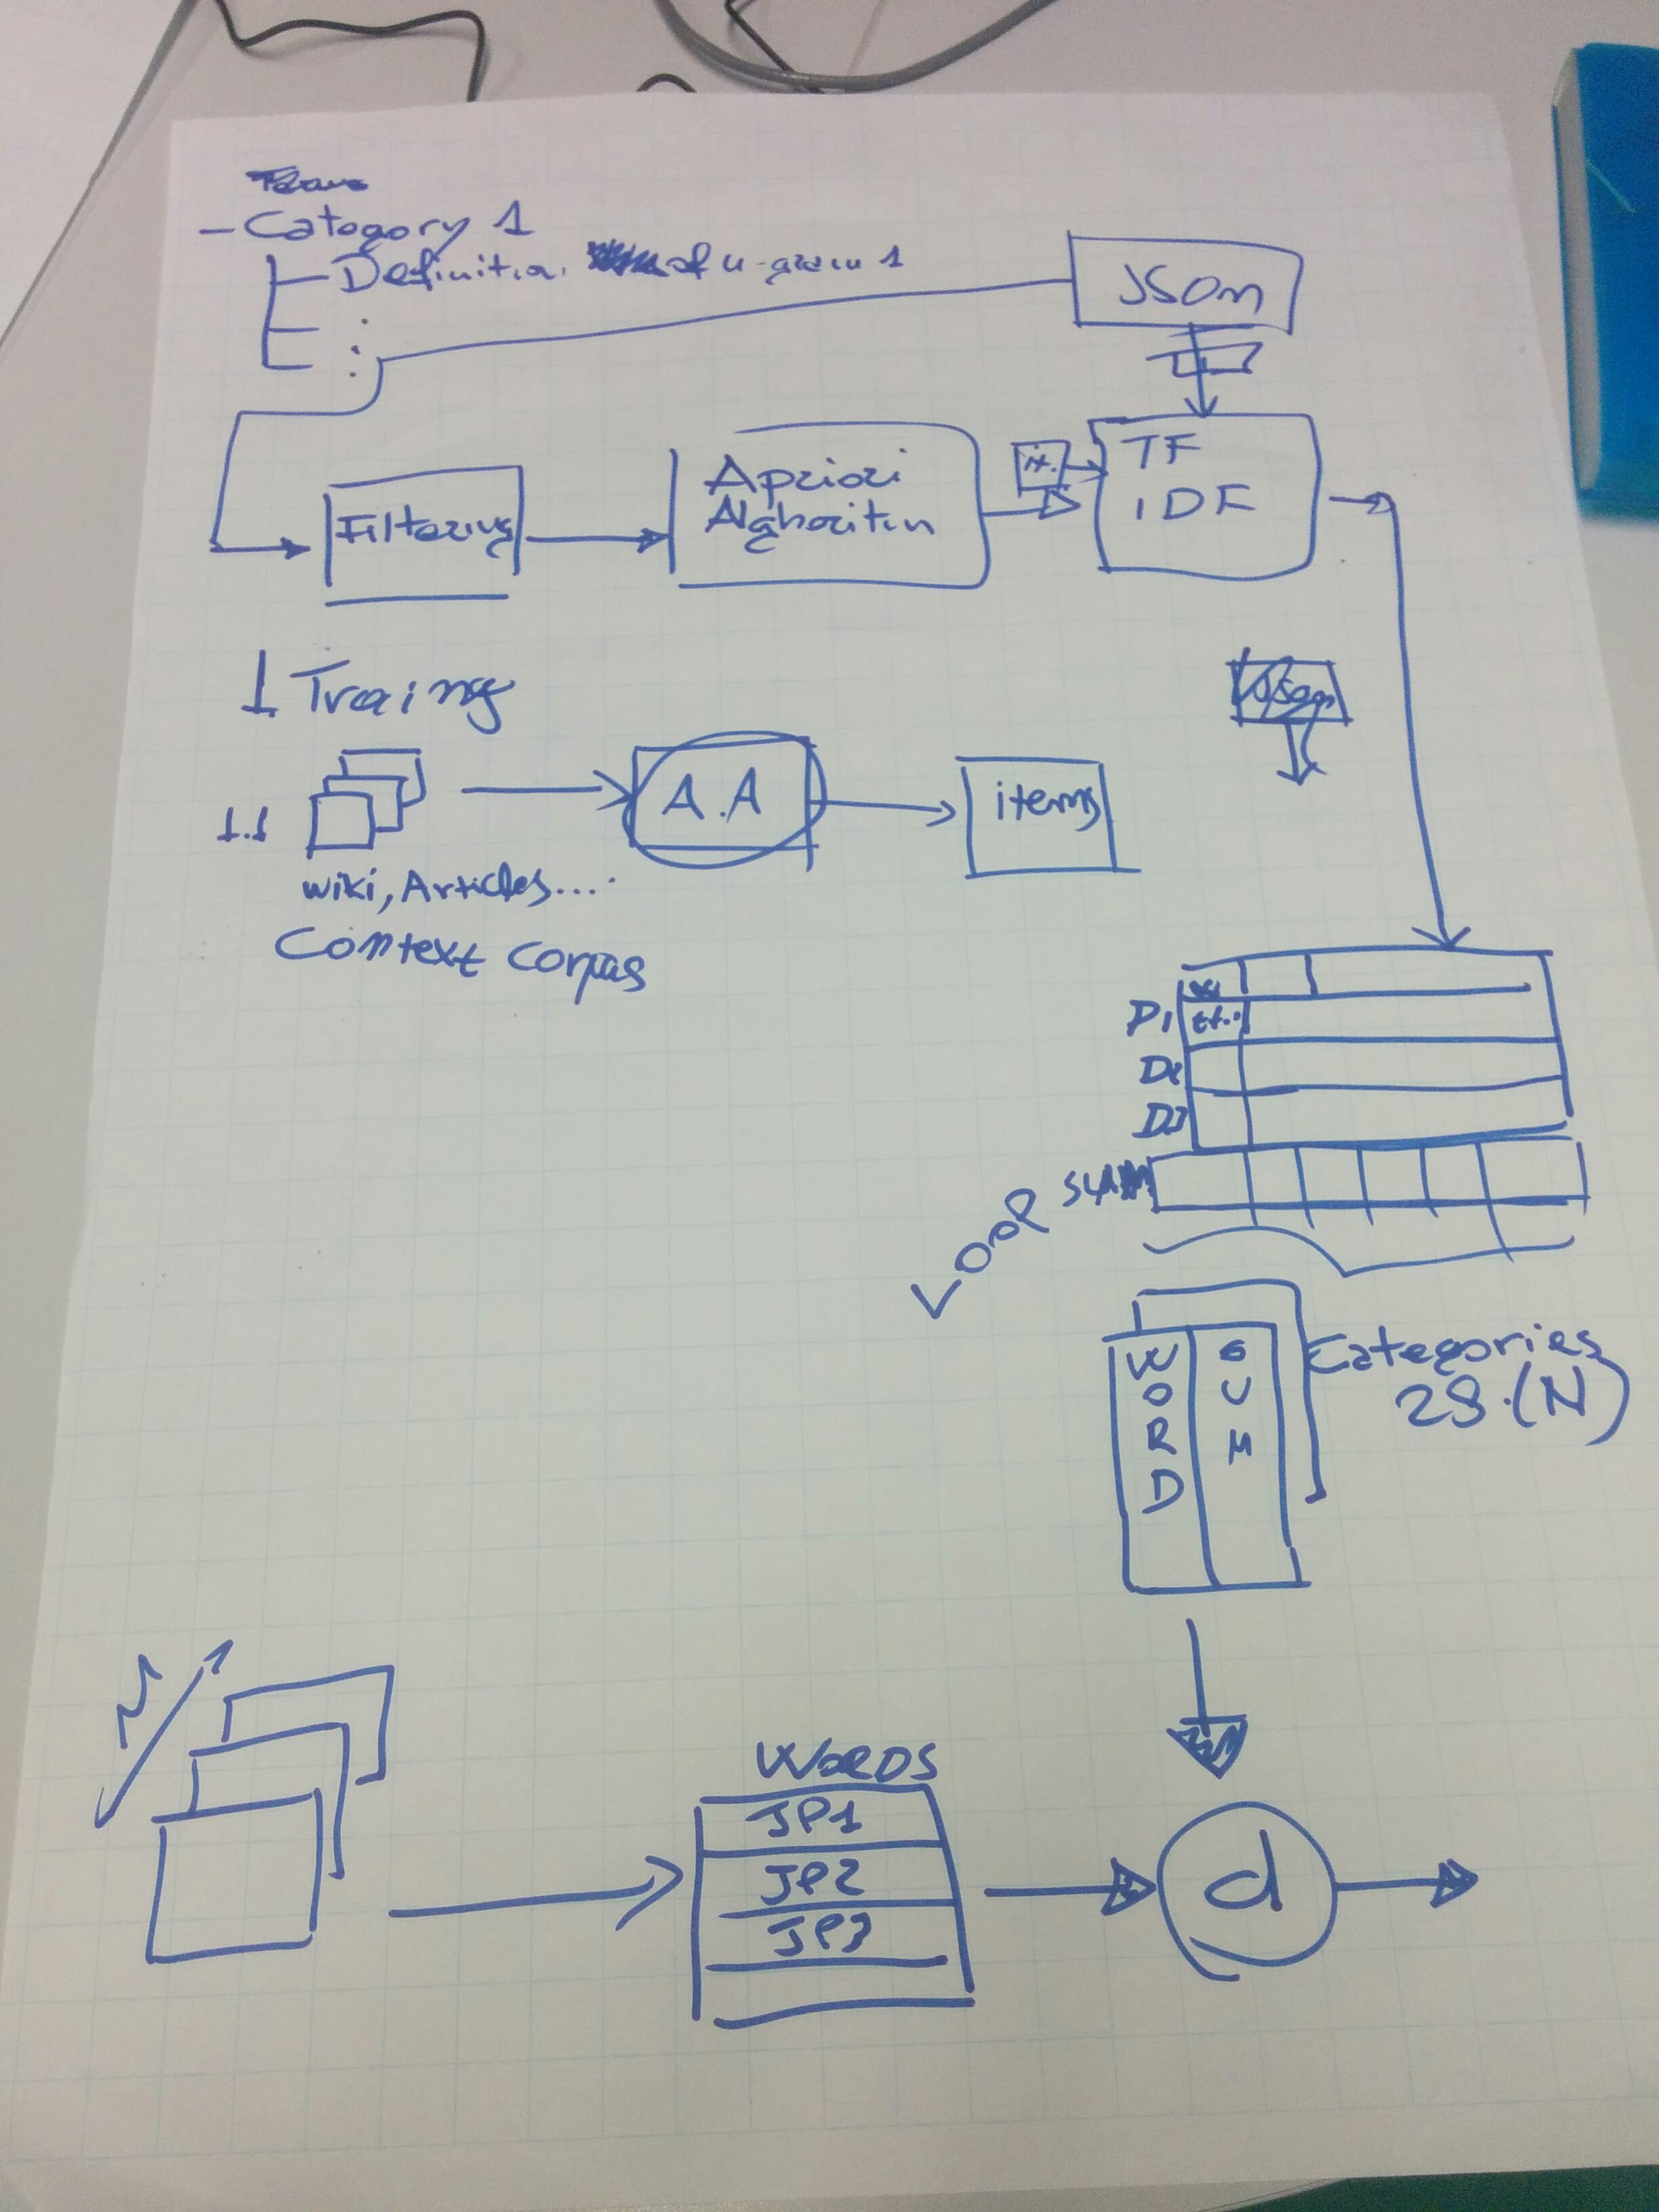 - Category 1
Definition. of n-gram 1
JSON
Filtering
Apriori
Alghoritm
it.
TF
IDF
1 Traing
1.1
A.A
items
wiki, Articles....
Context Corpus
D1
tf..
D2
D3
SUM
LOOP
WORD
SUM
Categories
28.(N)
N
WORDS
JP1
JP2
JP3
d